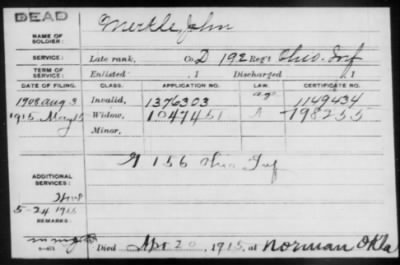 DEAD
NAME OF SOLDIER: Merkle, John
SERVICE: Late rank, Co. D 192 Reg't Ohio Inf
TERM OF SERVICE: Enlisted , 1 Discharged , 1
DATE OF FILING. CLASS. APPLICATION NO. LAW. CERTIFICATE NO.
1908 Aug 3 Invalid, 1376303 age 1149434
1915 May 15 Widow, 1047451 A 798255
Minor,
ADDITIONAL SERVICES: G 156 Ohio Inf
5-24 1915
REMARKS:
Died Apr 20, 1915, at Norman Okla